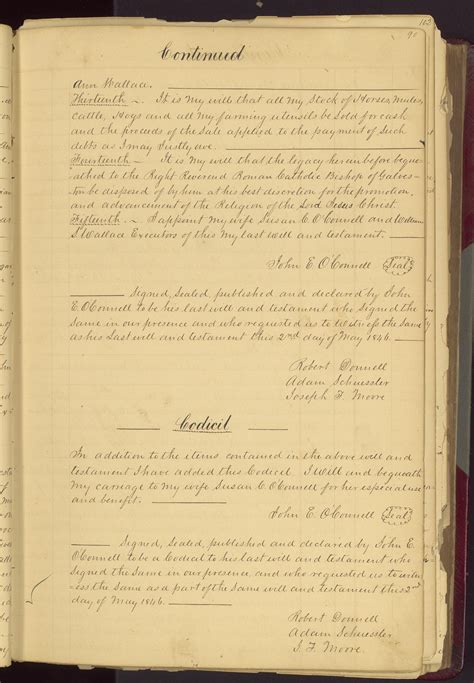 102
90
Continued
Ann Wallace.
Thirteenth — It is My will that all My Stock of Horses, Mules,
Cattle, Hogs and all My farming utensils be Sold for cash
and the proceeds of the Sale applied to the payment of Such
debts as I may Justly owe.
Fourteenth — It is My will that the legacy herein before beque-
athed to the Right Reverend Roman Catholic Bishop of Galves-
ton be disposed of by him at his best discretion for the promotion,
and advancement of the Religion of the Lord Jesus Christ.
Fifteenth — I appoint My wife Susan C. O'Connell and William
S. Wallace Executors of this My last will and testament.
John E. O'Connell Seal
Signed, Sealed, published and declared by John
E. O'Connell to be his last will and testament who Signed the
Same in our presence and who requested us to Witness the Same
as his Last will and testament this 2nd day of May 1846.
Robert Donnell
Adam Schuessler
Joseph F. Moore
Codicil
In addition to the items contained in the above will and
testament I have added this Codicel. I Will and bequeath
My carriage to My wife Susan C. O'Connell for her especial use
and benefit.
John E. O'Connell Seal
Signed, Sealed, published and declared by John E.
O'Connell to be a Codicil to his last will and testament who
Signed the Same in our presence, and who requested us to witn-
ess the Same as a part of the Same will and testament this 2nd
day of May 1846.
Robert Donnell
Adam Schuessler
J. F. Moore.